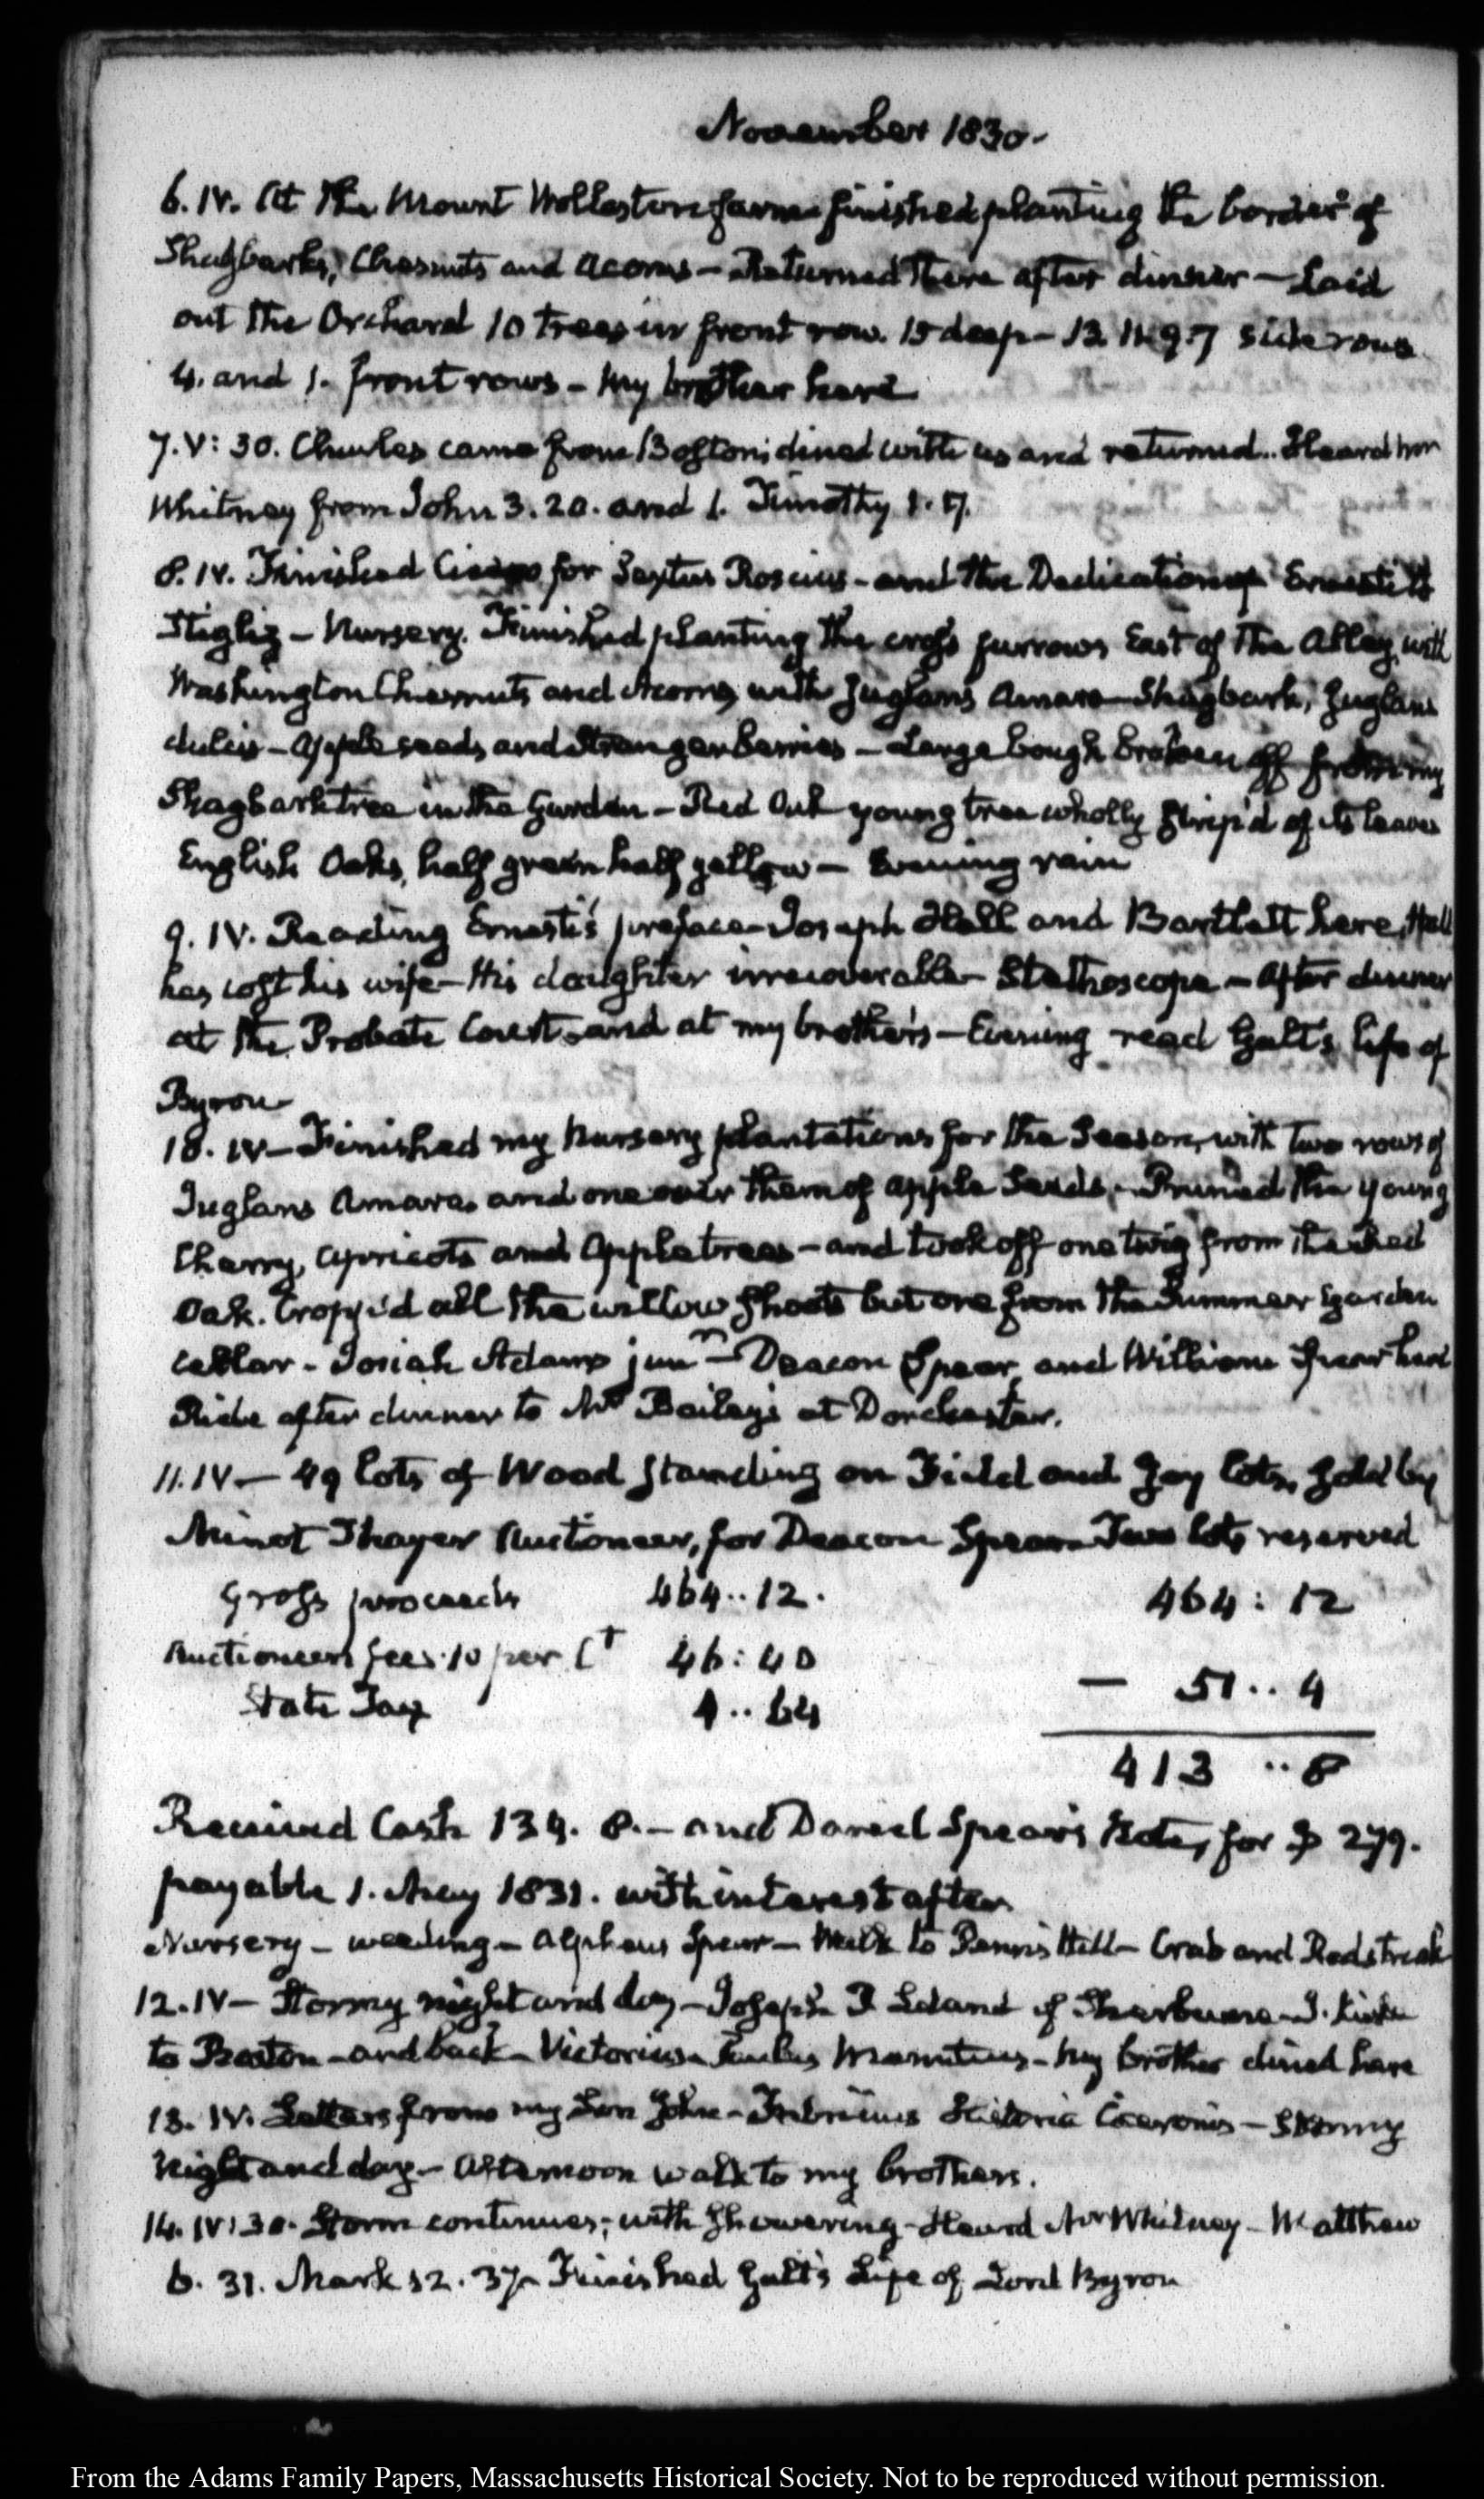 November 1830.
6. IV. At the Mount Wollaston farm finished planting the border of
Shagbarks, Chesnuts and Acorns — Returned there after dinner — Laid
out the Orchard 10 trees in front row. 15 deep — 13. 11. 9. 7 side rows
4. and 1. front rows — My brother here
7. V: 30. Charles came from Boston; dined with us and returned.. Heard Mr
Whitney from John 3. 20. and 1. Timothy 1. 17.
8. IV. Finished Cicero for Sextus Roscius — and the Dedication of Ernesti to
Stiglitz — Nursery. Finished planting the cross furrows East of the Alley, with
Washington Chesnuts and Acorns, with Juglans Amara — Shagbark, Juglans
dulcis — Apple seeds and Stranger Berries — Large bough broken off from my
Shagbark tree in the Garden — Red Oak young tree wholly strip'd of its leaves
English Oaks, half green half yellow — Evening rain
9. IV. Reading Ernesti's preface — Joseph Hall and Bartlett here, Hall
has lost his wife — His daughter irrecoverable — Stethoscope — After dinner
at the Probate Court and at my brother's — Evening read Galt's life of
Byron
10. IV — Finished my Nursery plantations for the Season, with two rows of
Juglans Amara and one over them of apple Seeds, — Pruned the young
Cherry, Apricots and Appletrees — and took off one twig from the Red
Oak. Cropp'd all the willow shoots but one from the Summer Garden
cellar — Josiah Adams junr — Deacon Spear and William Spear here
Ride after dinner to Mr Bailey's at Dorchester.
11. IV — 49 lots of Wood standing on Field and Gay lots, sold by
Minot Thayer Auctioneer, for Deacon Spear — Two lots reserved
Gross proceeds 464..12. 464: 12
Auctioneers fees 10 per Ct 46: 40
State Tax 4..64 — 51..4
413 ..8
Received Cash 134. 8. — and Daniel Spear's Note, for $ 279.
payable 1. May 1831. with interest after
Nursery — weeding — Alpheus Spear — Walk to Penn's Hill — Crab and Redstreak
12. IV — Stormy night and day — Joseph Leland of Sherburne — J. Kirke
to Boston — and back — Victorius — Paulus Manutius — My brother dined here
13. IV. Letters from my Son John — Fabricius Historia Ciceronis — Stormy
Night and day — Afternoon walk to my brothers.
14. IV: 30. Storm continues; with showering — Heard Mr Whitney — Matthew
6. 31. Mark 12. 37. Finished Galt's Life of Lord Byron
From the Adams Family Papers, Massachusetts Historical Society. Not to be reproduced without permission.